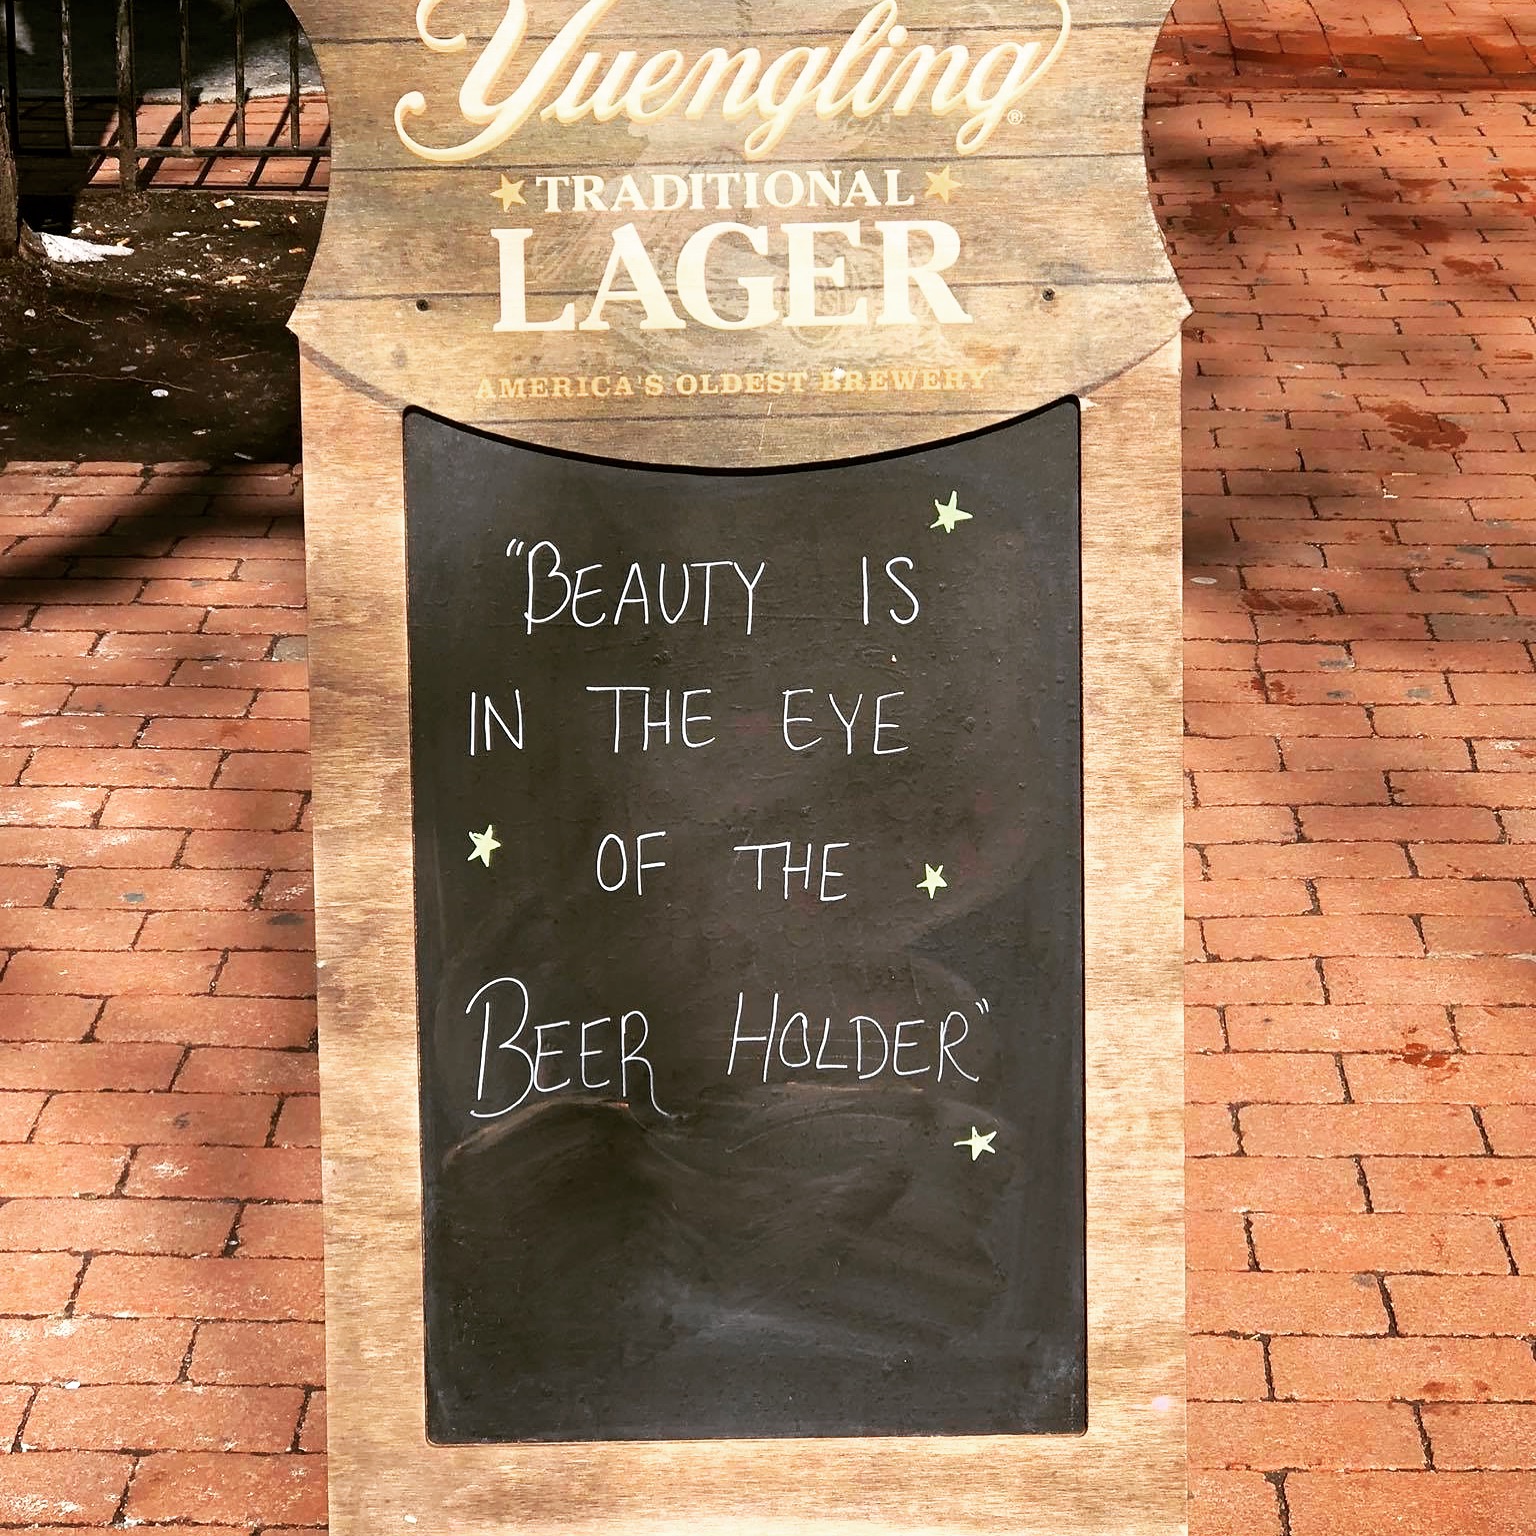 Yuengling®
TRADITIONAL
LAGER
AMERICA'S OLDEST BREWERY
"BEAUTY IS
IN THE EYE
OF THE
BEER HOLDER"